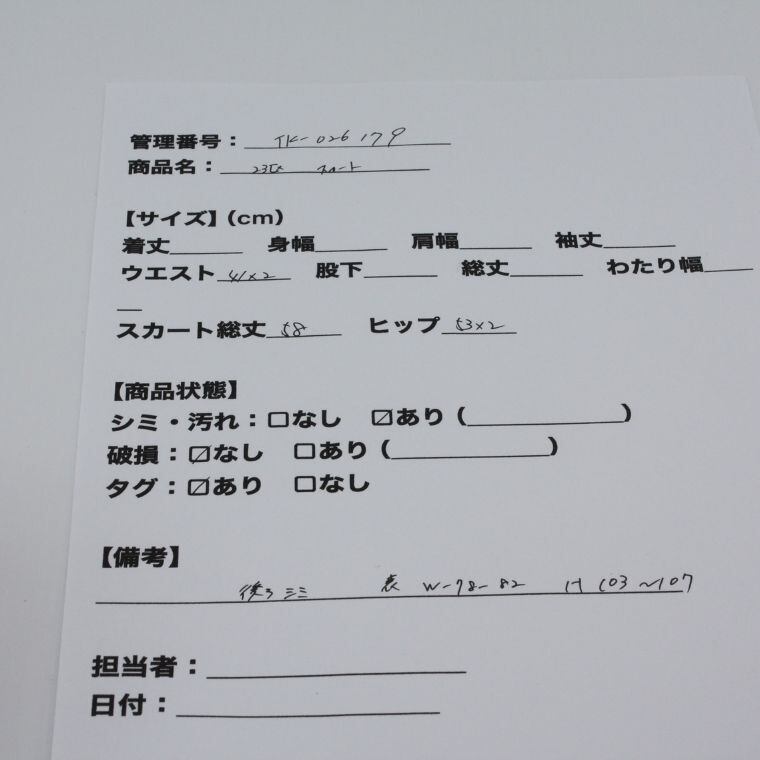 管理番号：TK-026179
商品名：23区 スカート
【サイズ】(cm)
着丈______ 身幅______ 肩幅______ 袖丈______
ウエスト 41×2 股下______ 総丈______ わたり幅____
__
スカート総丈 58 ヒップ 53×2
【商品状態】
シミ・汚れ：☐なし ☑あり（____________）
破損：☑なし ☐あり（____________）
タグ：☑あり ☐なし
【備考】
後ろシミ 表 W-78-82 H 103～107
担当者：____________________
日付：____________________